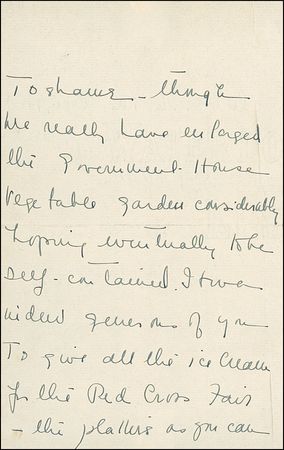 To shame – though
We really have enlarged
the Government House
vegetable garden considerably
hoping eventually to be
self-contained. It was
indeed generous of you
To give all the ice cream
for the Red Cross Fair
– the as you can